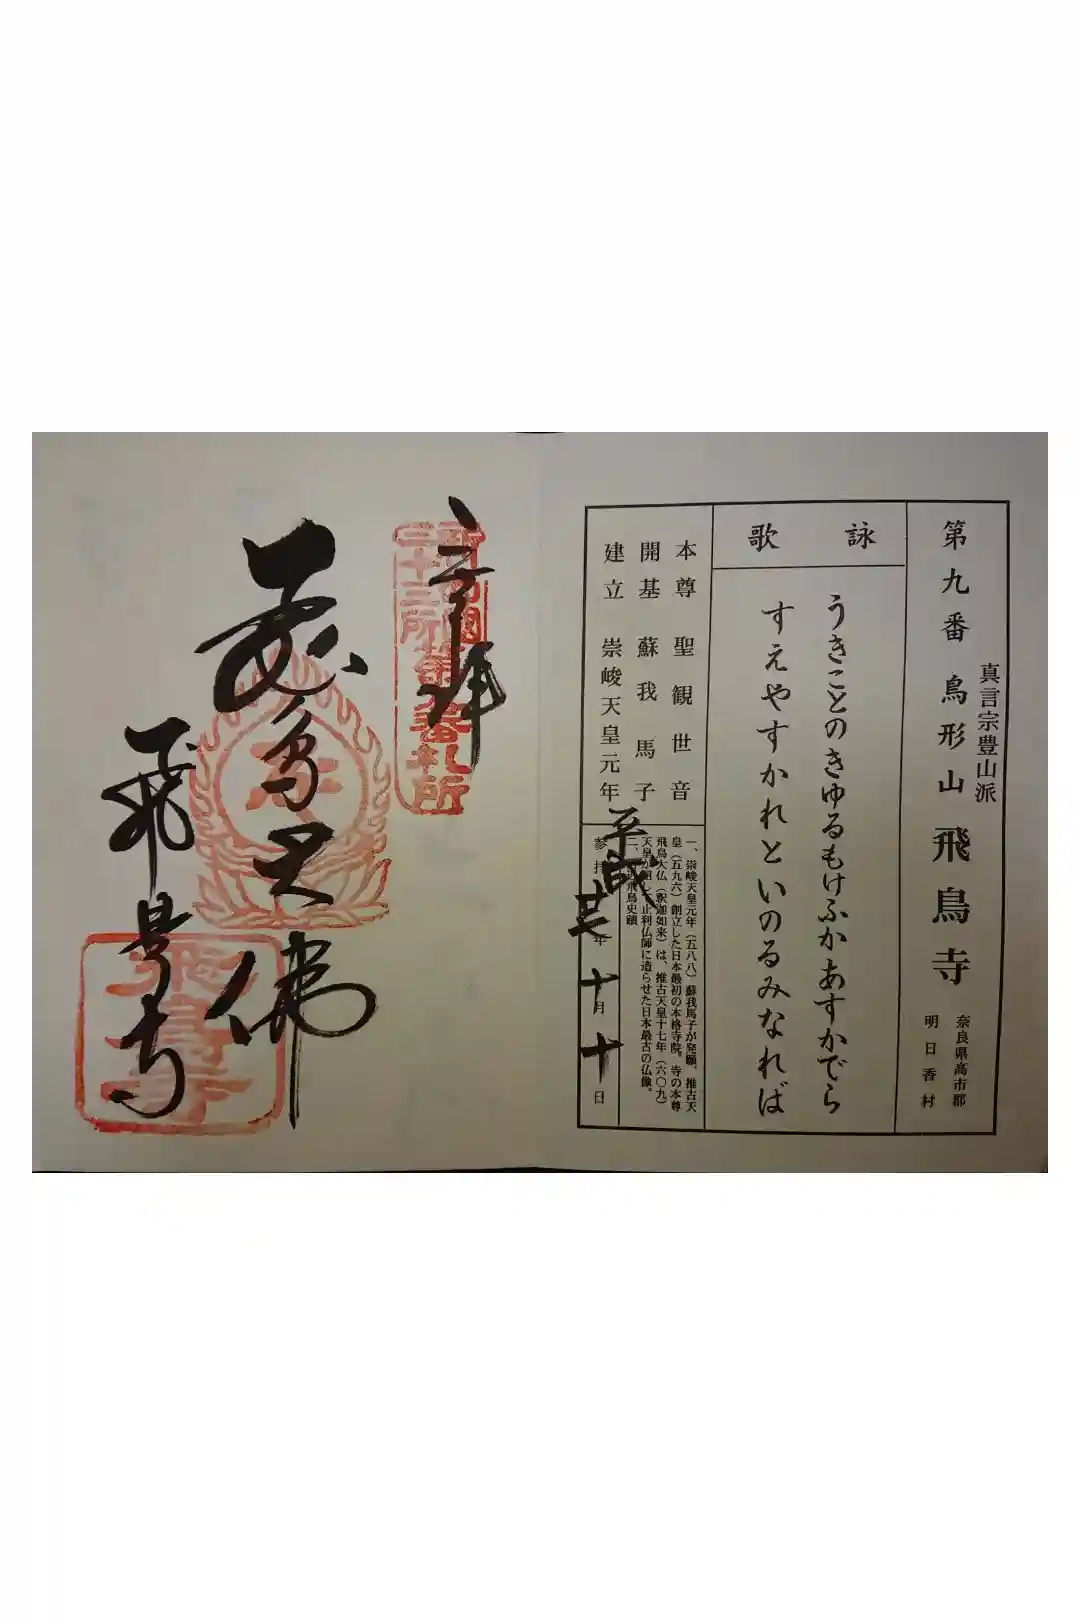 第九番 鳥形山 飛鳥寺
真言宗豊山派
奈良県高市郡
明日香村
詠歌
うきことのきゆるもけふかあすかでら
すえやすかれといのるみなれば
本尊 聖観世音
開基 蘇我馬子
建立 崇峻天皇元年
一、崇峻天皇元年(五八八)蘇我馬子が発願、推古天
皇(五九六)創立した日本最初の本格寺院。寺の本尊
飛鳥大仏(釈迦如来)は、推古天皇十七年(六〇九)
天皇が 止利仏師に造らせた日本最古の仏像。
二、 飛鳥史蹟
参拝 平成廿七年十月十日
奉拝
西国
三十三所第九番札所
飛鳥大佛
飛鳥寺
飛鳥寺